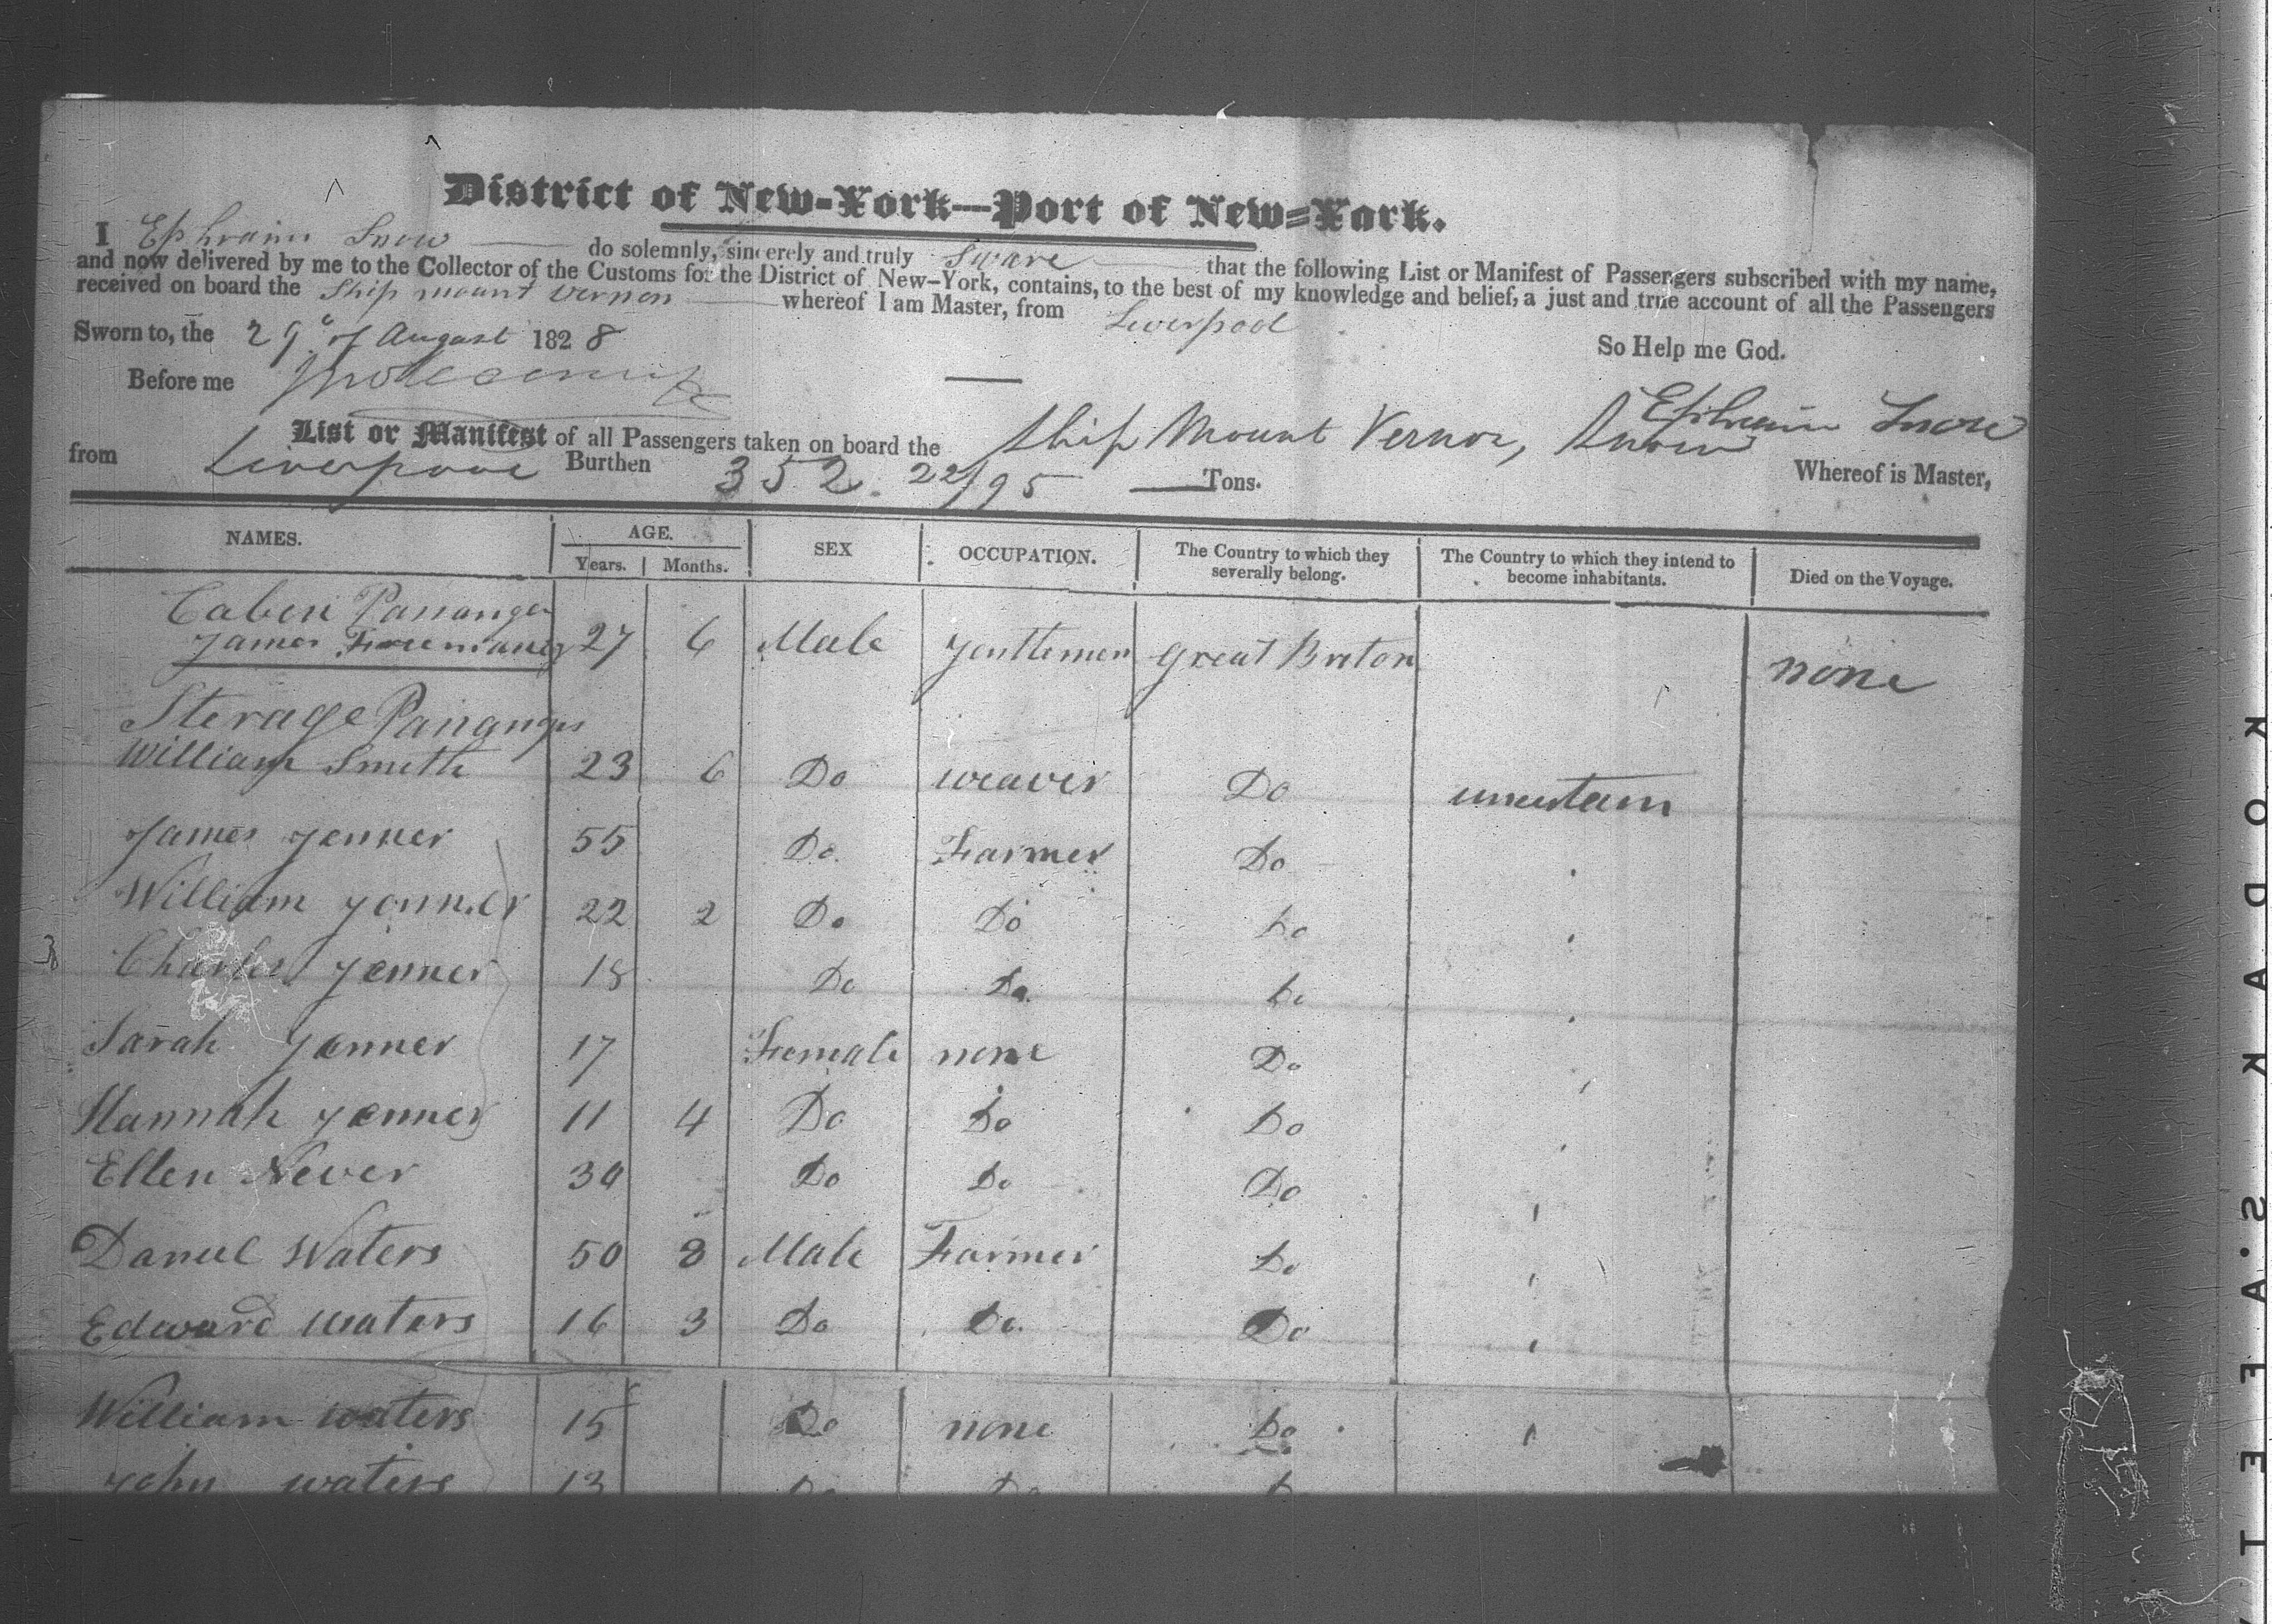 District of New-York—Port of New-York.
I Ephraim Snow do solemnly, sincerely and truly Sware that the following List or Manifest of Passengers subscribed with my name,
and now delivered by me to the Collector of the Customs for the District of New-York, contains, to the best of my knowledge and belief, a just and true account of all the Passengers
received on board the Ship mount Vernon whereof I am Master, from Liverpool
Sworn to, the 29th of August 1828 So Help me God.
Before me
Ephraim Snow
List or Manifest of all Passengers taken on board the Ship Mount Vernon, Snow
from Liverpool Burthen 352. 22/95 Tons. Whereof is Master,
NAMES. AGE. SEX OCCUPATION. The Country to which they severally belong. The Country to which they intend to become inhabitants. Died on the Voyage.
Years. Months.
Caben Passanger
James 27 6 Male Gentlemen Great Briton none
Sterage Passangers
William Smith 23 6 Do weaver Do uncertain
James Jenner 55 Do Farmer Do
William Jenner 22 2 Do Do Do
Charles Jenner 18 Do Do Do
Sarah Jenner 17 Female none Do
Hannah Jenner 11 4 Do Do Do
Ellen Never 30 Do Do Do
Daniel Waters 50 8 Male Farmer Do
Edward waters 16 3 Do Do Do
William waters 15 Do none Do
John waters 13 Do Do D
KODAK SAFET